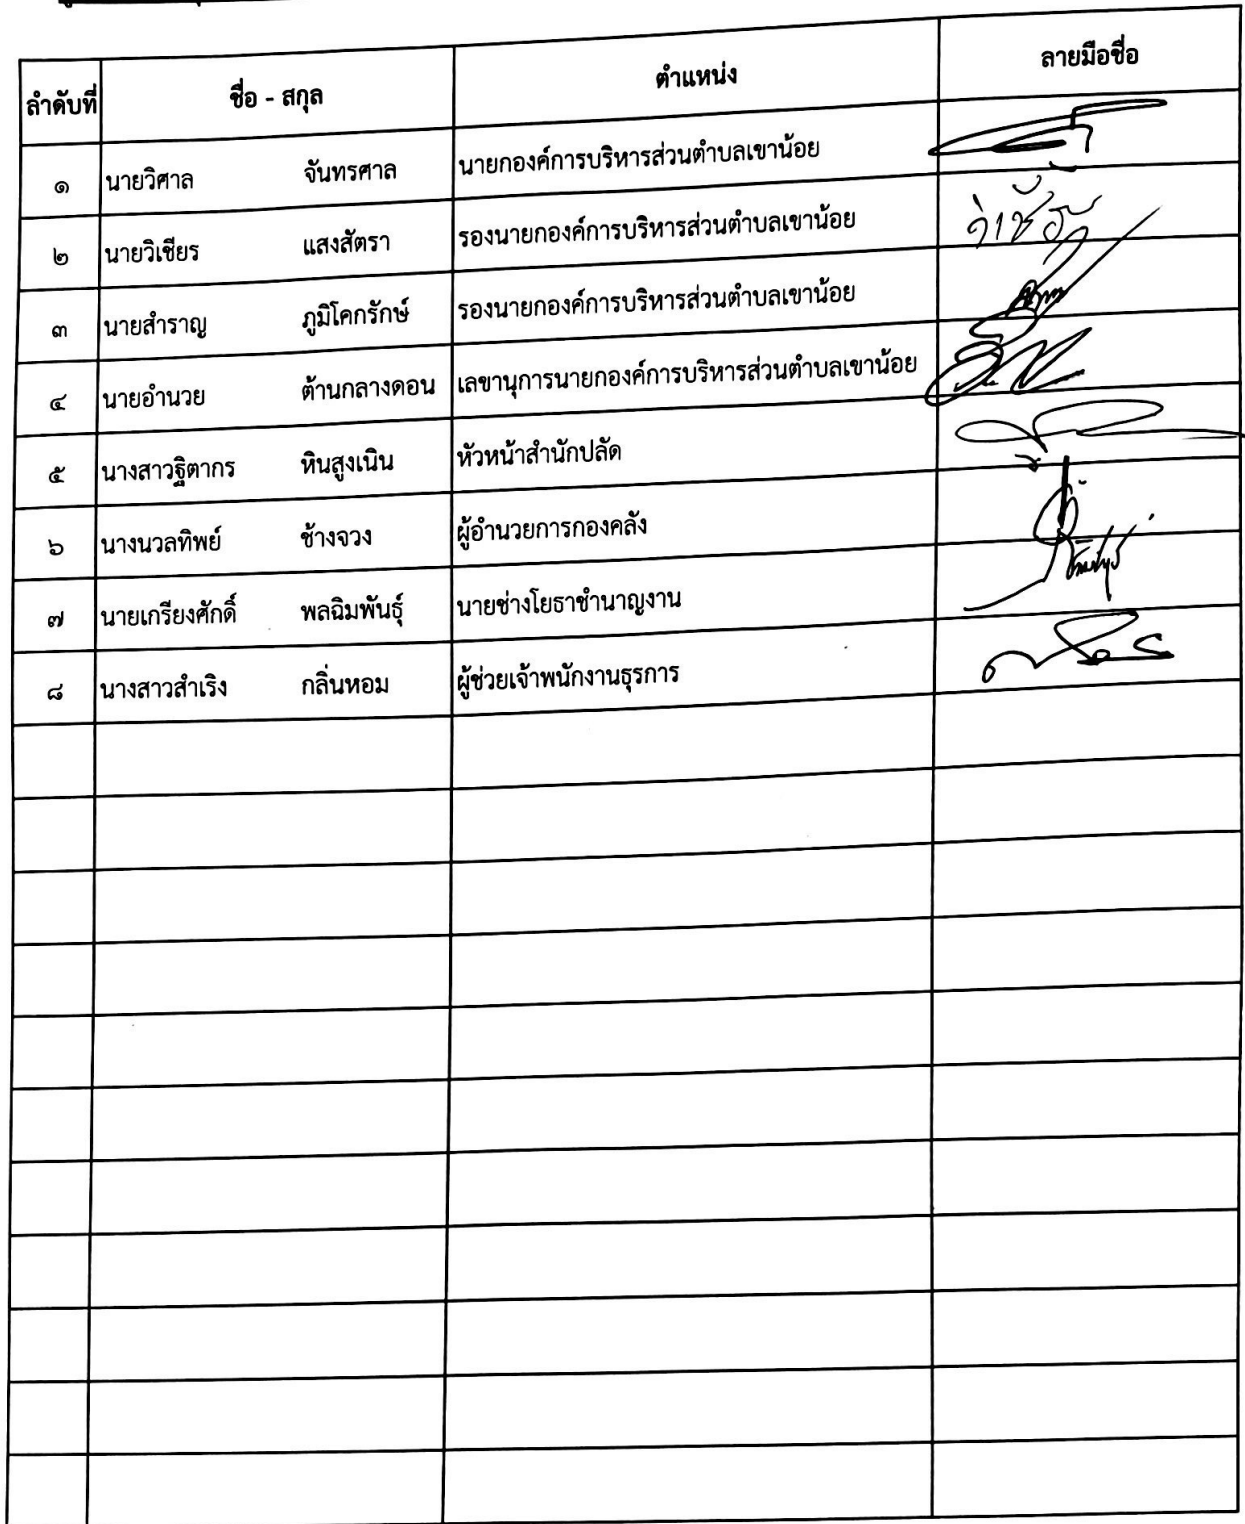 ลำดับที่ ชื่อ - สกุล ตำแหน่ง ลายมือชื่อ
๑ นายวิศาล จันทรศาล นายกองค์การบริหารส่วนตำบลเขาน้อย
๒ นายวิเชียร แสงสัตรา รองนายกองค์การบริหารส่วนตำบลเขาน้อย
๓ นายสำราญ ภูมิโคกรักษ์ รองนายกองค์การบริหารส่วนตำบลเขาน้อย
๔ นายอำนวย ด้านกลางดอน เลขานุการนายกองค์การบริหารส่วนตำบลเขาน้อย
๕ นางสาวฐิตากร หินสูงเนิน หัวหน้าสำนักปลัด
๖ นางนวลทิพย์ ช้างจวง ผู้อำนวยการกองคลัง
๗ นายเกรียงศักดิ์ พลฉิมพันธุ์ นายช่างโยธาชำนาญงาน
๘ นางสาวสำเริง กลิ่นหอม ผู้ช่วยเจ้าพนักงานธุรการ